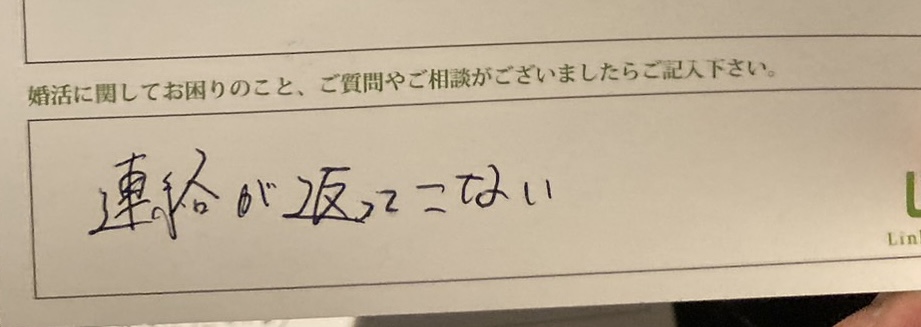 婚活に関してお困りのこと、ご質問やご相談がございましたらご記入下さい。
連絡が返ってこない